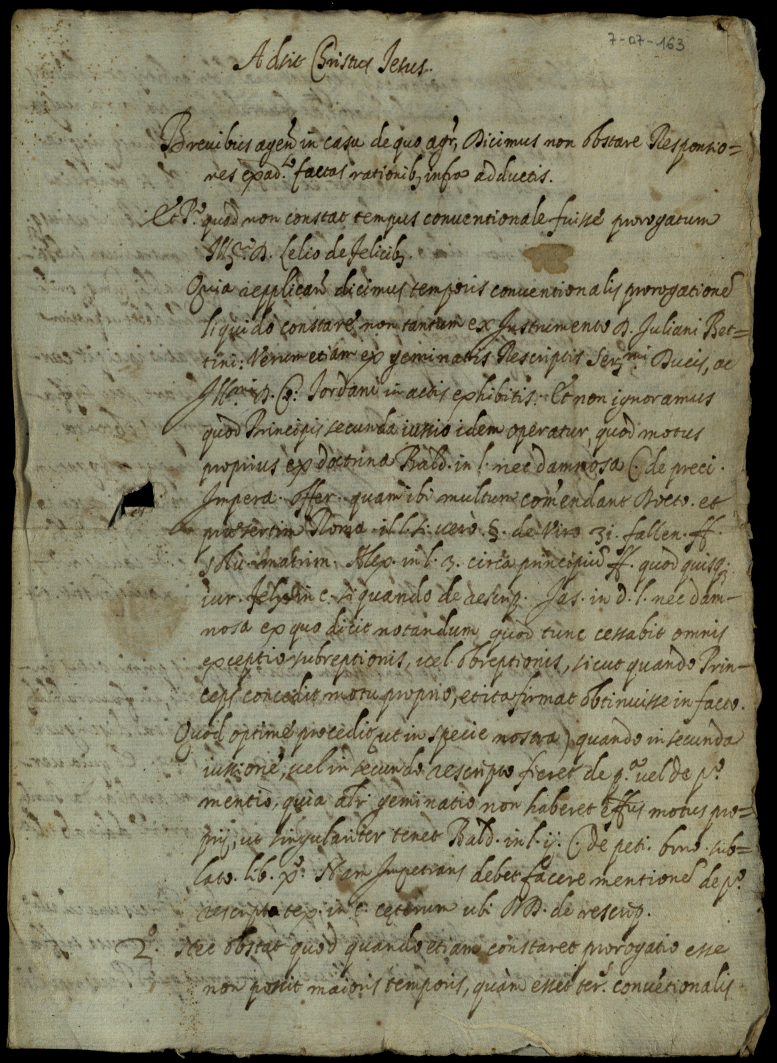 7-07-163
Adsit Christus Jesus.
Brevibus agen in casu de quo agr, Dicimus non obstare Responsio=
res ex ad. factas rationib, infra adductis.
Et P.o quod non constat tempus conventionale fuisse prorogatum
D. Lelio de Felicib,
Quia replican dicimus temporis conventionalis prorogatione
liquido constare non tantum ex Instrumento D. Juliani Bet=
tini: Verum etiam ex geminatis Rescriptis Ser.mi Ducis, ac
Ill.mi D. Jordani in actis exhibitis. Et non ignoramus
quod Principis secunda iussio idem operatur, quod motus
proprius ex doctrina Bald. in l. nec damnosa C. de preci.
Impera. offer. quam ibi multum comendant Docto. et
praesertim Roma. il l. si vero. §. de Viro 31. fallen. ff.
solu. matrim. Alex. in l. 3. circa principiu ff. quod quisq;
iur. Felin in c. si quando de rescrip. Jas. in d. l. nec dam=
nosa ex quo dicit notandum, quod tunc cessabit omnis
exceptio subreptionis, vel obreptionis, sicut quando Prin=
ceps concedit motu proprio, et ita firmat obtinuisse in facto.
Quod optime procedit (ut in specie nostra) quando in secunda
iussione, vel in secundo rescripto fieret de p.a vel de p.o
mentio, quia alr geminatio non haberet effus motus pro=
prij, ut singulariter tenet Bald. in l. ij. C. de peti. bono. sub=
lato. lib. X.o Nam Impetrans debet facere mentione de p.o
rescripto tex. in c. ceterum ubi DD. de rescrip.
2.o Nec obstat quod quando etiam constaret prorogatio esse
non possit maioris temporis, quam esset ter. conventionalis